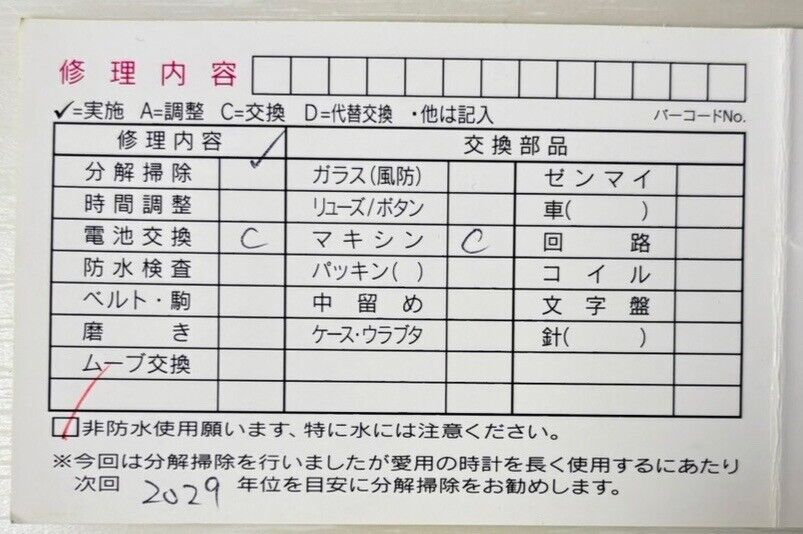 修理内容
✓=実施 A=調整 C=交換 D=代替交換 ・他は記入 バーコードNo.
修理内容 交換部品
分解掃除 ✓ ガラス(風防) ゼンマイ
時間調整 リューズ/ボタン 車( )
電池交換 C マキシン C 回路
防水検査 パッキン( ) コイル
ベルト・駒 中留め 文字盤
磨き ケース・ウラブタ 針( )
ムーブ交換
非防水使用願います、特に水には注意ください。
※今回は分解掃除を行いましたが愛用の時計を長く使用するにあたり
次回 2029 年位を目安に分解掃除をお勧めします。